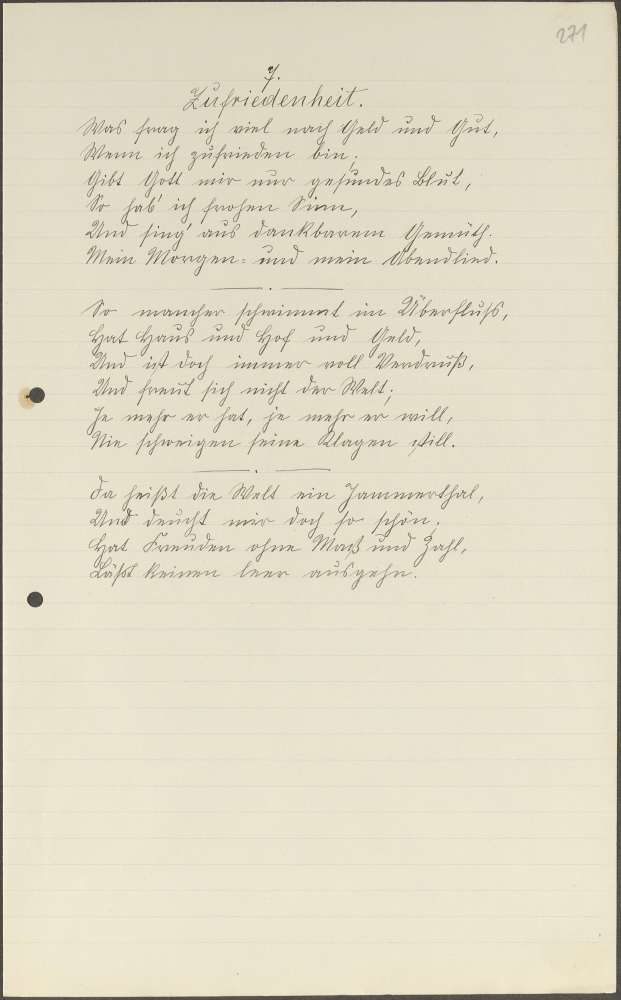 271
7.
Zufriedenheit.
Was frag ich viel nach Geld und Gut,
Wenn ich zufrieden bin;
Gibt Gott mir nur gesundes Blut,
So hab' ich frohen Sinn,
Und sing' aus dankbarem Gemüth.
Mein Morgen- und mein Abendlied.
So mancher schwimmt im Überfluß,
Hat Haus und Hof und Geld,
Und ist doch immer voll Verdruß,
Und freut sich nicht der Welt;
Je mehr er hat, je mehr er will,
Nie schweigen seine Klagen still.
Da heißt die Welt ein Jammerthal,
Und deucht mir doch so schön,
Hat Freuden ohne Maß und Zahl,
Läßt keinen leer ausgehn.